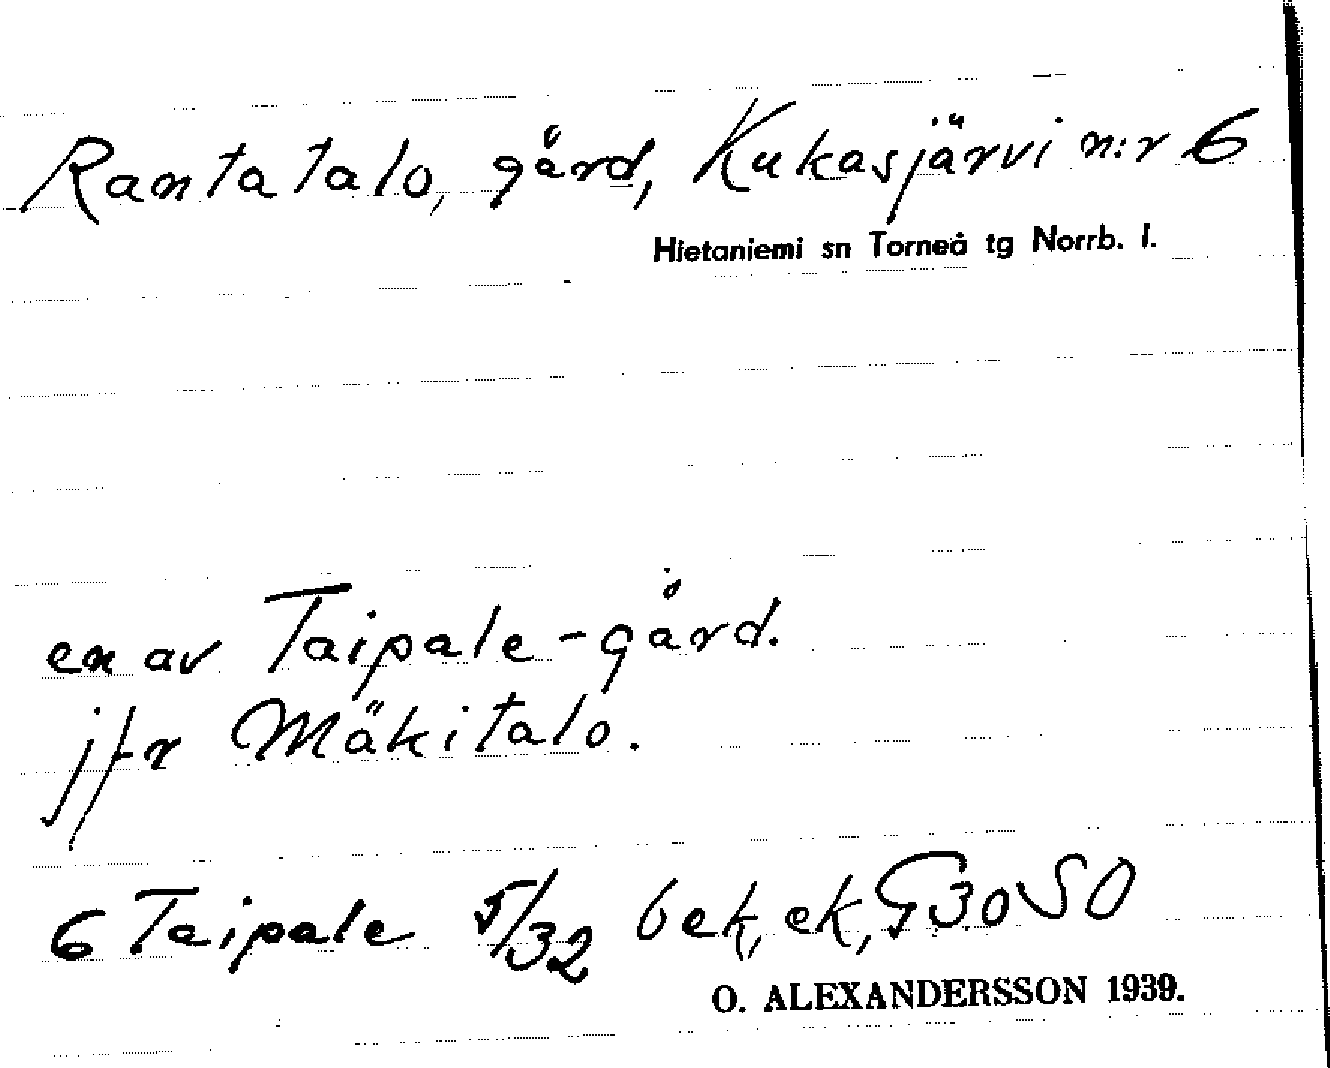 Rantatalo, gård, Kukasjärvi n:r 6
Hietaniemi sn Torneå tg Norrb. l.
en av Taipale-gård.
jfr Mäkitalo.
6 Taipale 5/32 bek, ek, G30SO
O. ALEXANDERSSON 1939.